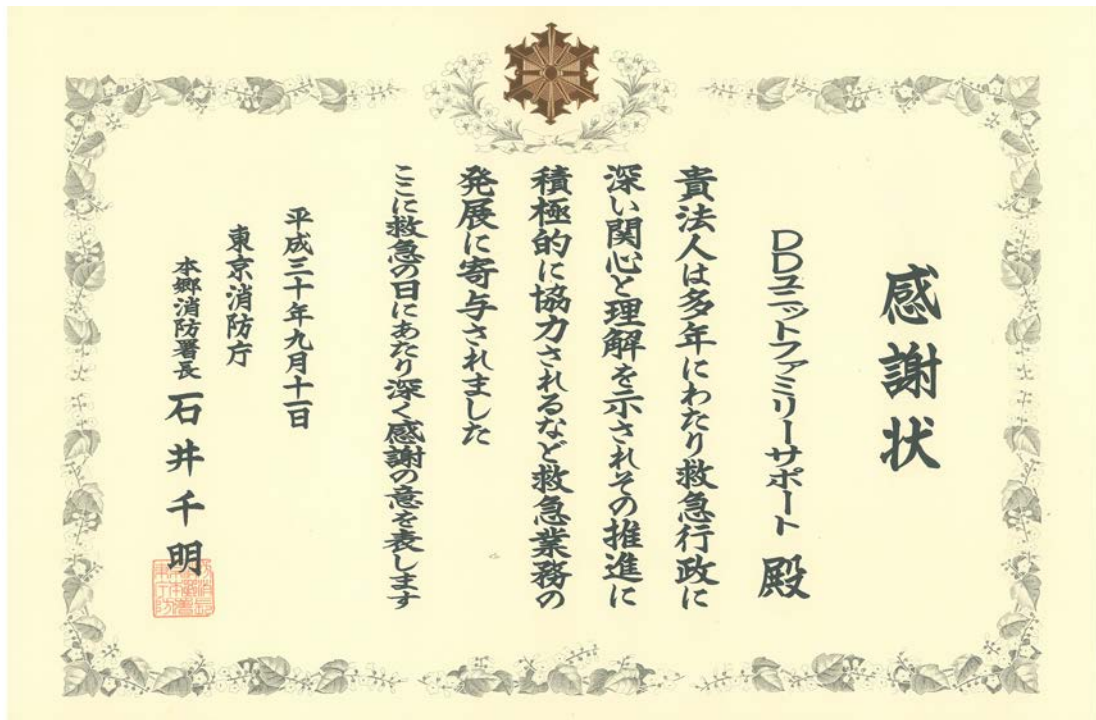 感謝状
DDユニットファミリーサポート 殿
貴法人は多年にわたり救急行政に
深い関心と理解を示されその推進に
積極的に協力されるなど救急業務の
発展に寄与されました
ここに救急の日にあたり深く感謝の意を表します
平成三十年九月十一日
東京消防庁
本郷消防署長 石井千明